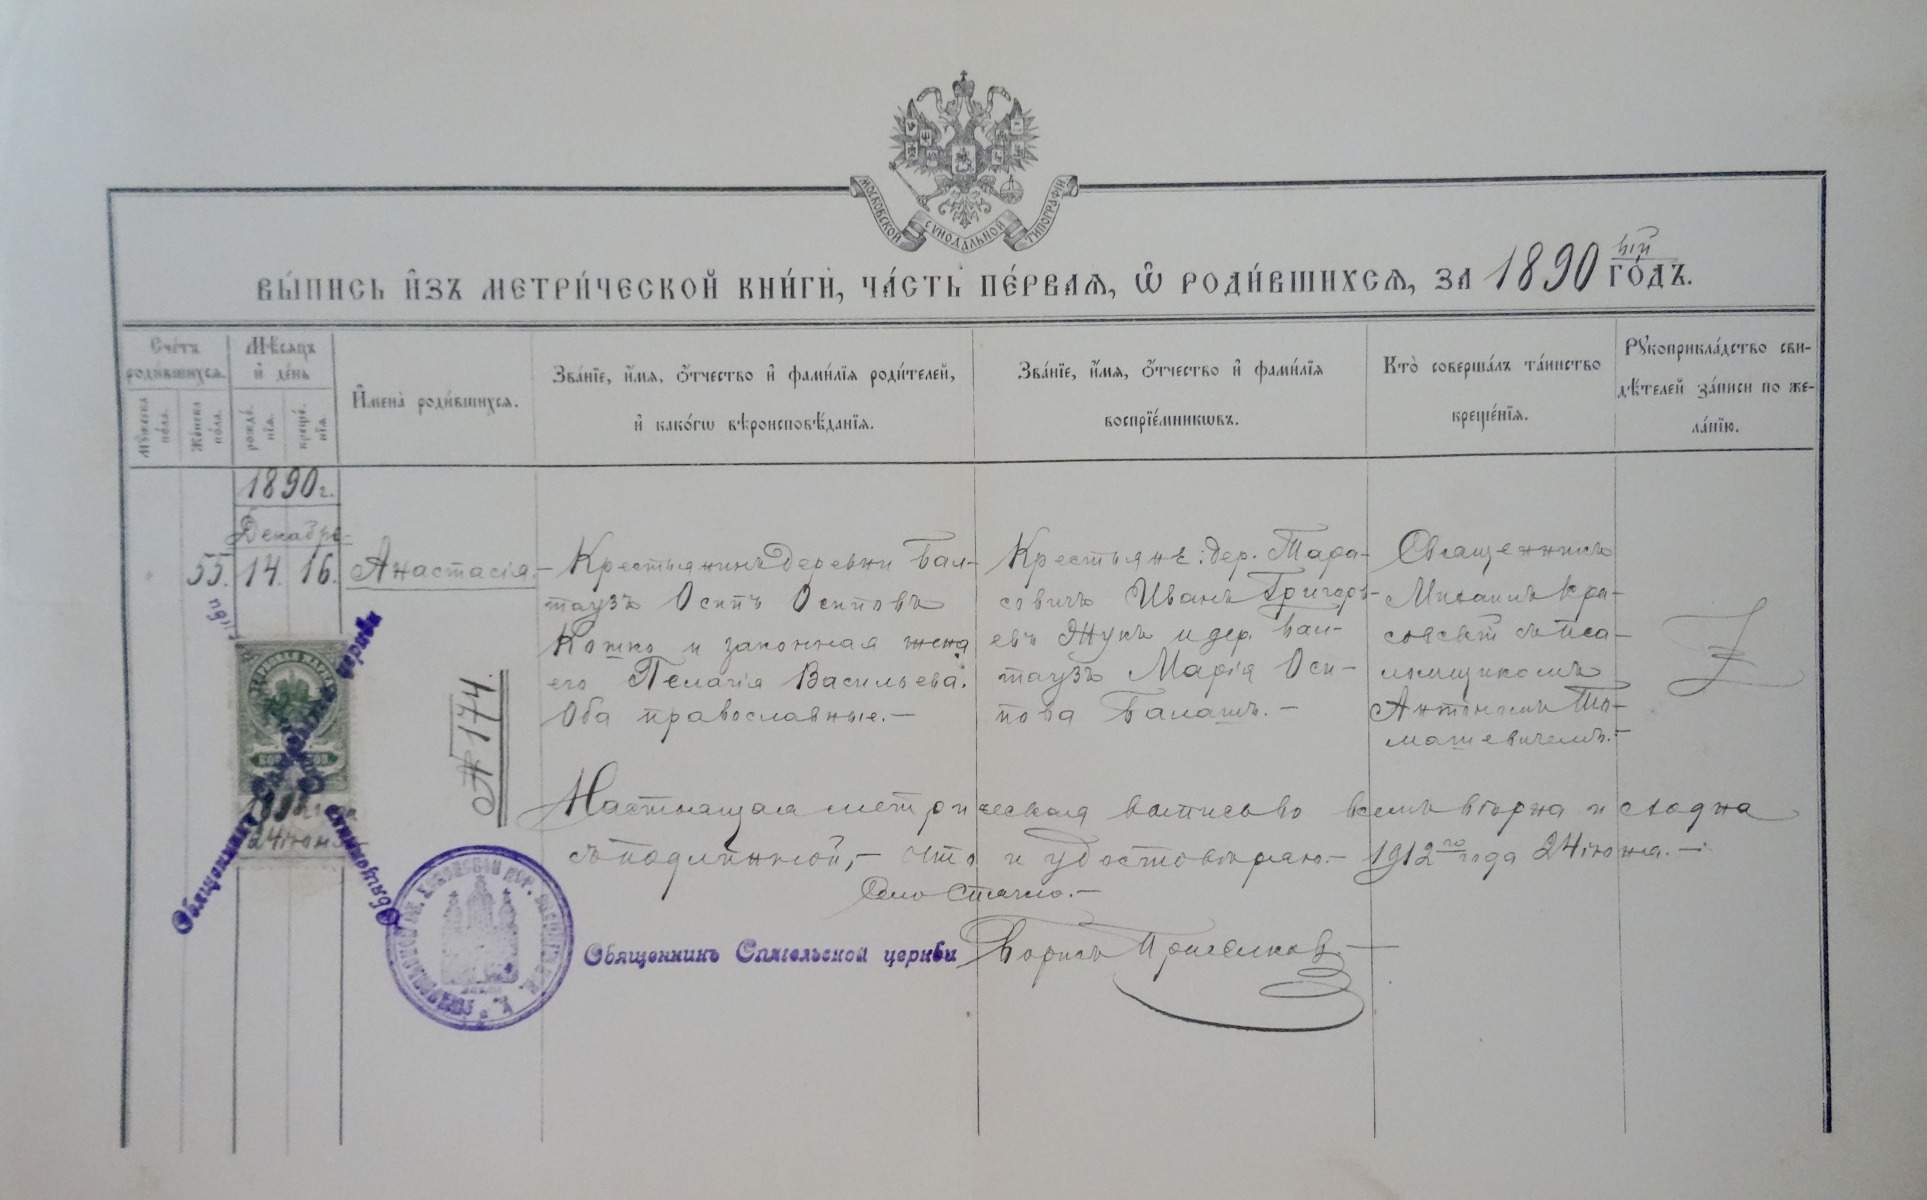 МОСКОВСКОЙ СѴНОДАЛЬНОЙ ТИПОГРАФІИ
ВЫ́ПИСЬ И҆́ЗЪ МЕТРИ́ЧЕСКОЙ КНИ́ГИ, ЧА́СТЬ ПЕ́РВАѦ, Ѡ҆ РОДИ́ВШИХСѦ, ЗА 1890ый ГО́ДЪ.
Сче́тъ роди́вшихсѧ.
Мꙋ́жеска по́ла.
Же́нска по́ла.
Мѣ́сѧцъ и҆ де́нь
рожде́нїѧ.
креще́нїѧ.
И҆мена̀ роди́вшихсѧ.
Зва́нїе, и҆́мѧ, ѻ҆́тчество и҆ фами́лїѧ роди́телей,
и҆ како́гѡ вѣроисповѣ́данїѧ.
Зва́нїе, и҆́мѧ, ѻ҆́тчество и҆ фами́лїѧ
воспрїе́мникѡвъ.
Кто̀ соверша́лъ та́инство
креще́нїѧ.
Рꙋкоприкла́дство сви-
дѣ́телей за́писи по же-
ла́нїю.
1890 г.
Декабрь
55. 14. 16. Анастасія.
Крестьянинъ деревни Бал-
таузъ Осипъ Осиповъ
Кошко и законная жена
его Пелагія Васильева.
Оба православные.-
Крестьяне: дер. Тара-
совичъ Иванъ Григорь-
евъ Жукъ и дер. Бал-
таузъ Марія Оси-
пова Балашъ.-
Священникъ
Михаилъ Кра-
съ псa-
ломщикомъ
Антономъ То-
машевичемъ.-
№ 174.
Настоящая метрическая выпись во всемъ вѣрна и сходна
съ подлинной,- что и удостовѣряю.- 1912го года 24 іюня.-
Село
Священникъ Спягельской церкви Борисъ
24 іюня
Священникъ Спягельской церкви